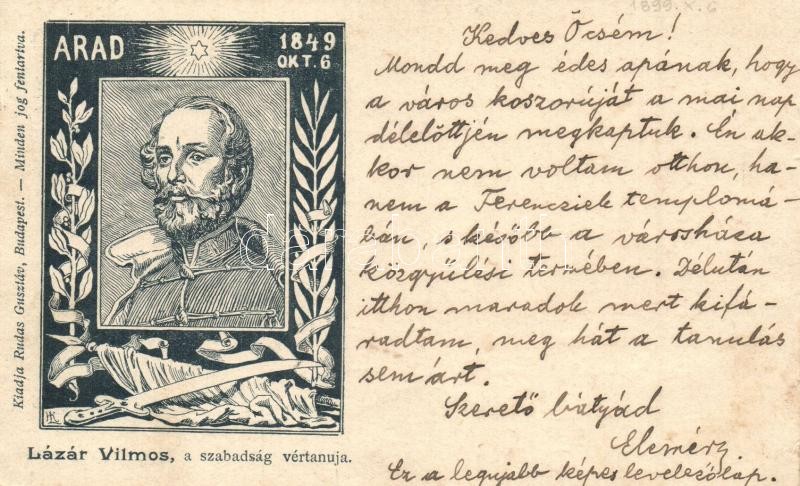 1899.X.6
Kedves Öcsém!
Mondd meg édes apának, hogy
a város koszorúját a mai nap
délelőttjén megkaptuk. Én ak-
kor nem voltam otthon, ha-
nem a Ferencziek templomá-
bán, s később a városháza
közgyűlési termében. Délután
itthon maradok mert kifá-
radtam, meg hát a tanulás
sem árt.
Szerető bátyád
Elemér
Ez a legujabb képes levelezőlap.
ARAD
1849
OKT. 6
Lázár Vilmos, a szabadság vértanuja.
Kiadja Rudas Gusztáv, Budapest. — Minden jog fentartva.